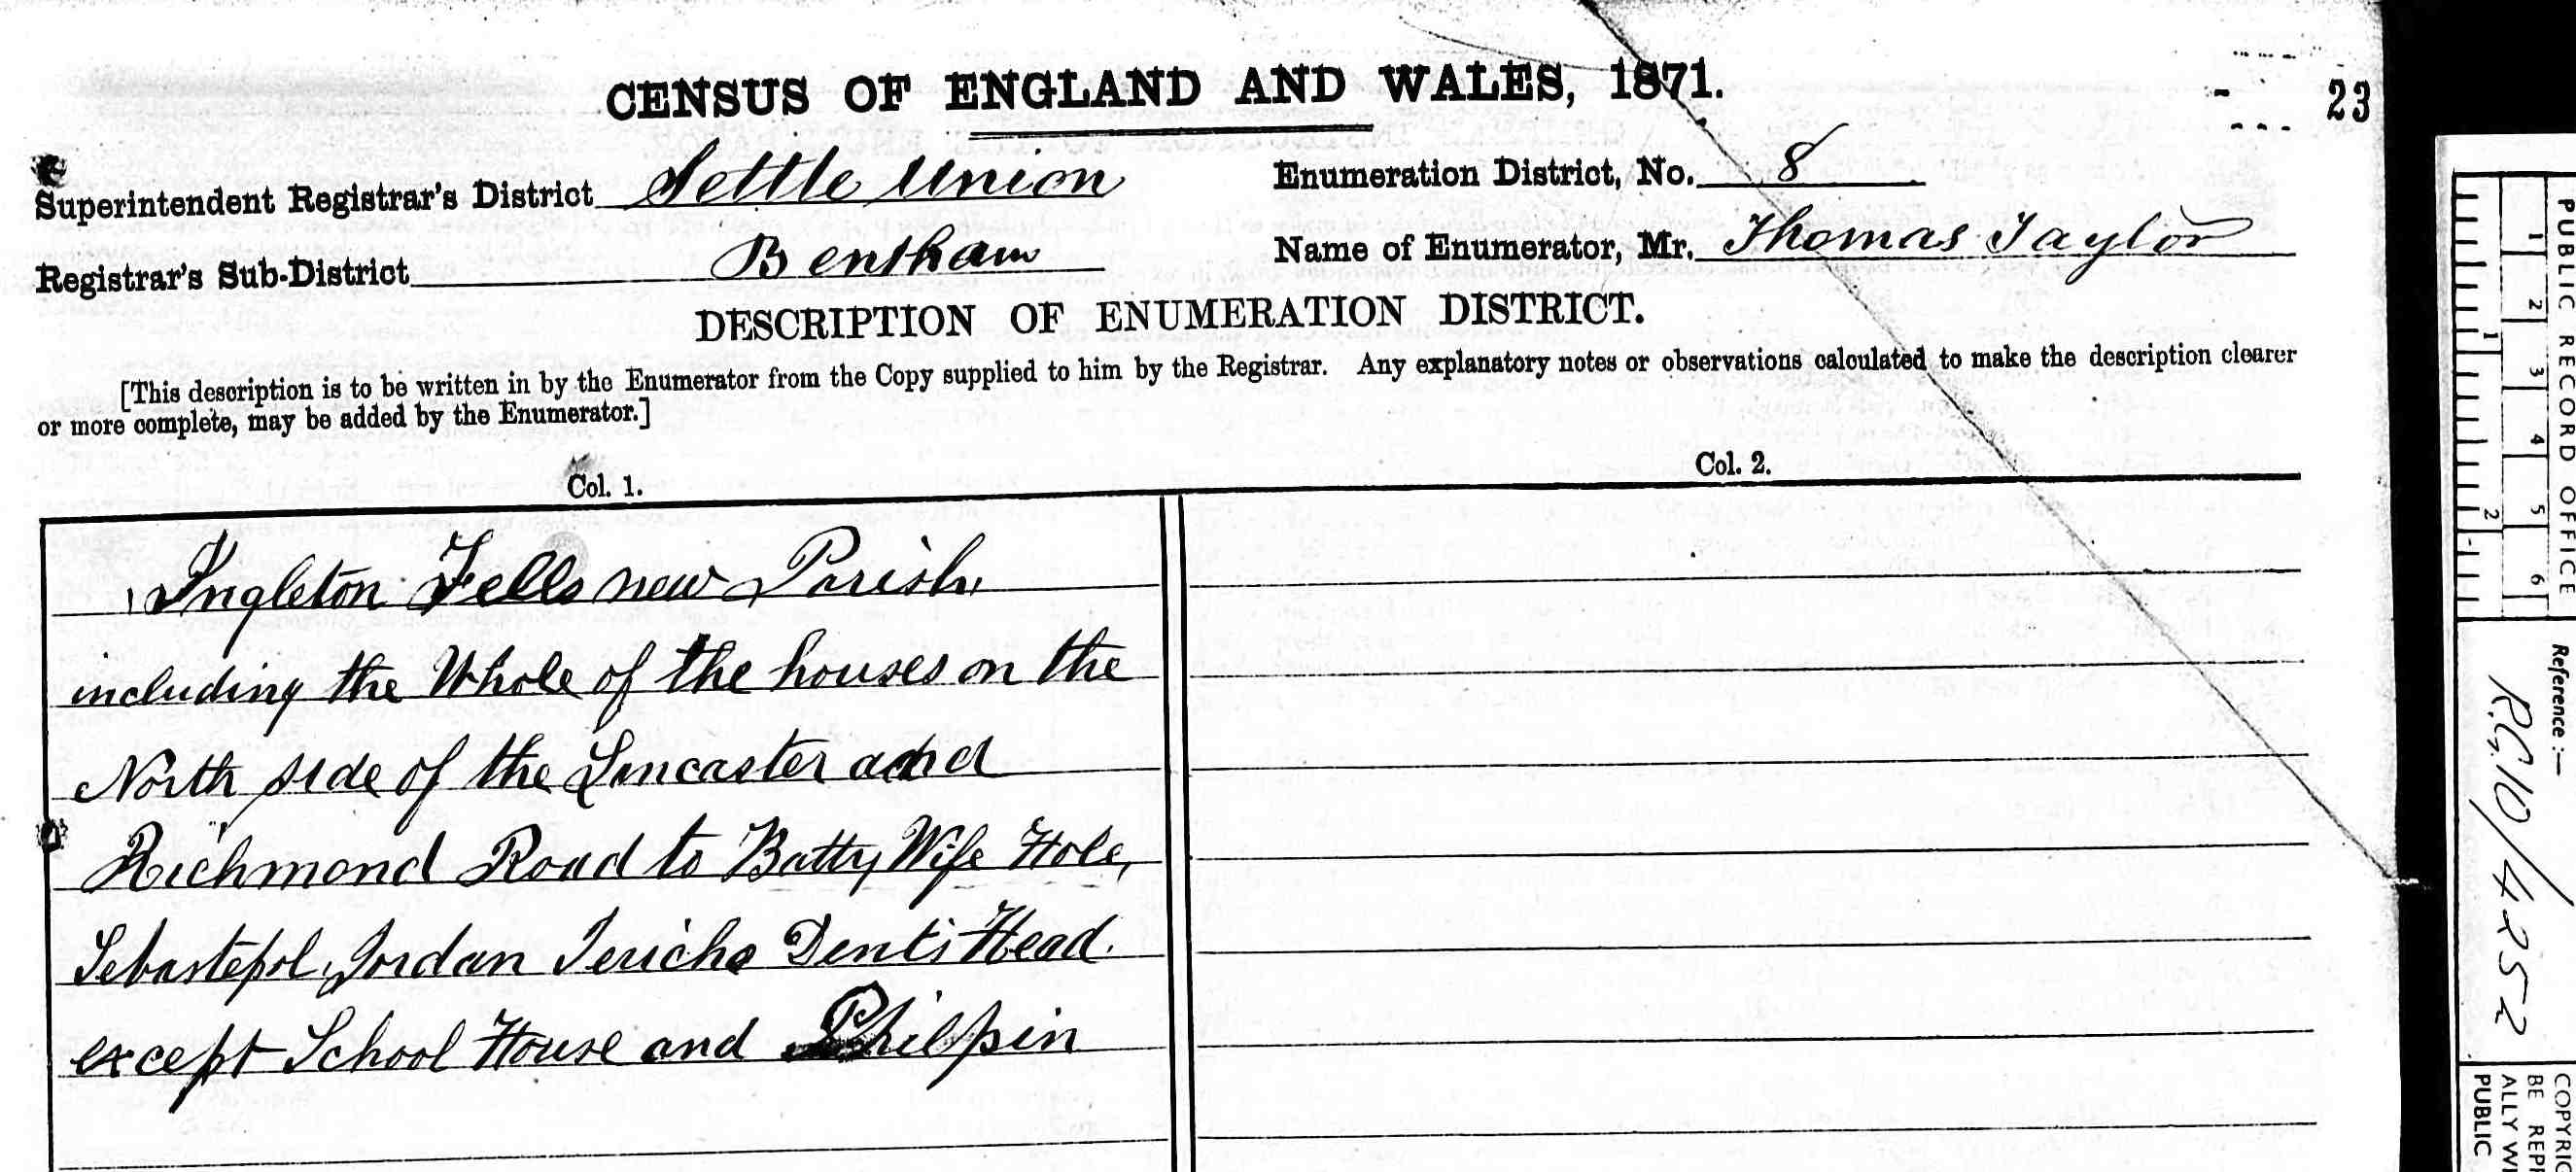 CENSUS OF ENGLAND AND WALES, 1871.
23
Superintendent Registrar's District Settle Union
Enumeration District, No. 8
Registrar's Sub-District Bentham
Name of Enumerator, Mr. Thomas Taylor
DESCRIPTION OF ENUMERATION DISTRICT.
[This description is to be written in by the Enumerator from the Copy supplied to him by the Registrar. Any explanatory notes or observations calculated to make the description clearer
or more complete, may be added by the Enumerator.]
Col. 1.
Col. 2.
Ingleton Fells new Parish
including the Whole of the houses on the
North side of the Lancaster and
Richmond Road to Batty Wife Hole,
Sebastepol, Jordan Jericho Dent's Head.
except School House and Philpin
PUBLIC RECORD OFFICE
1 2 3 4 5 6
1 2
Reference :—
R.G. 10/4252
COPYRIG
BE REPR
ALLY WI
PUBLIC